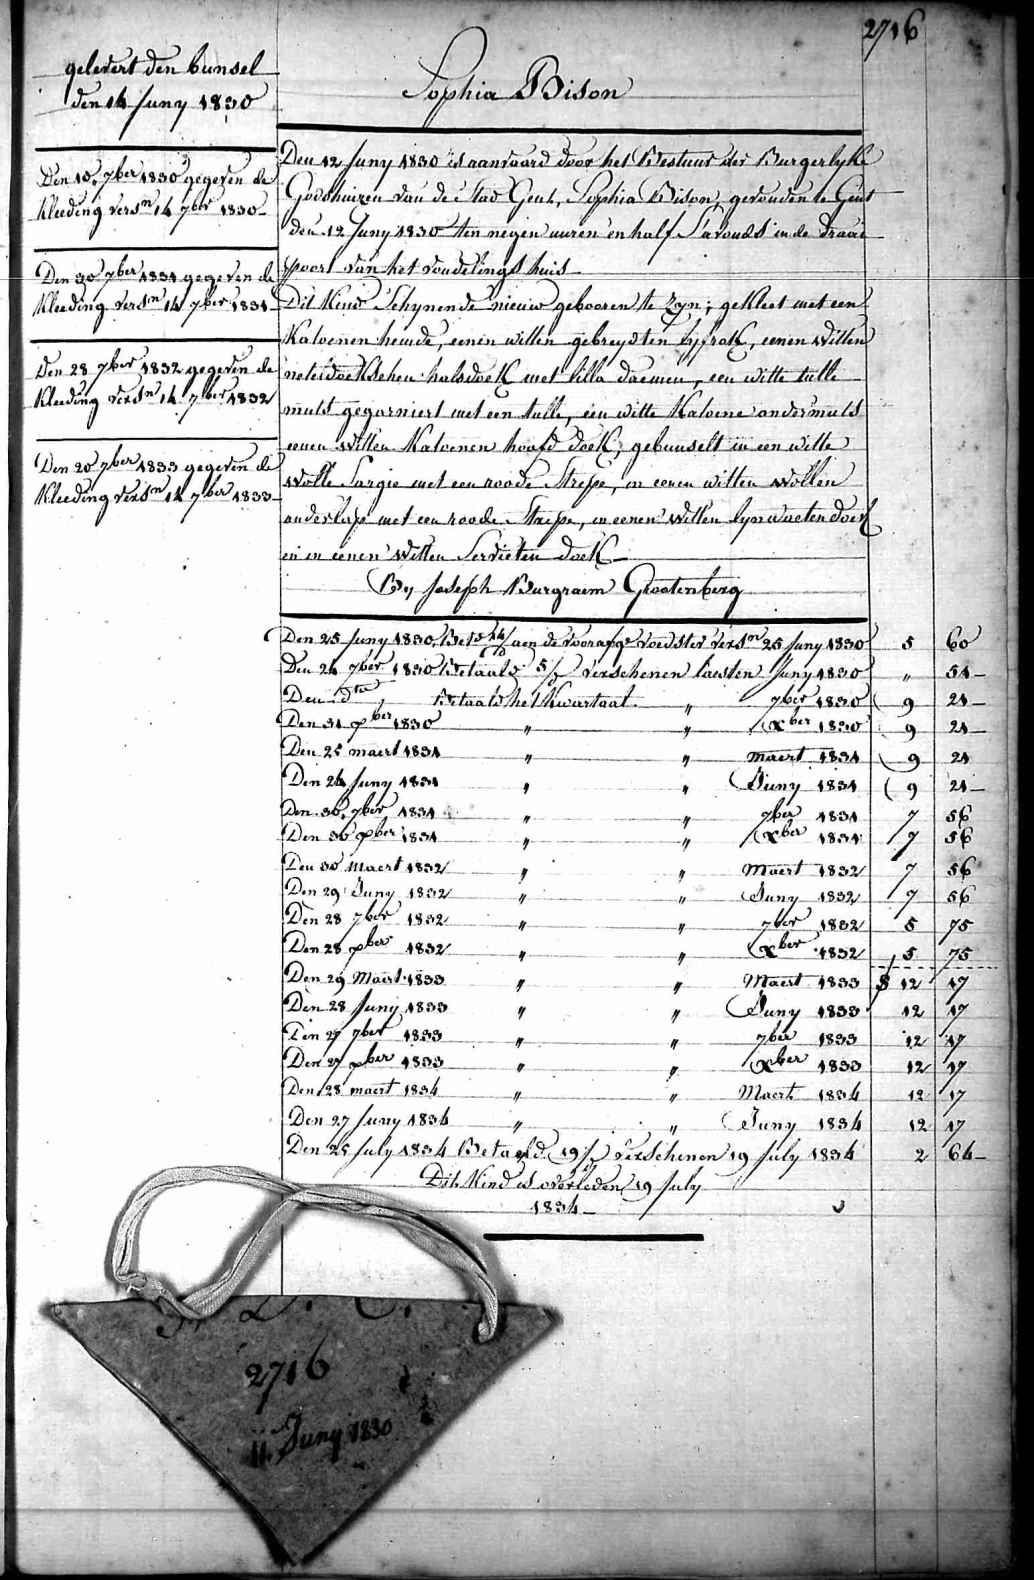 2716
gelevert den bunsel
den 14 Juny 1830
Den 10 7ber 1830 gegeven de
Kleeding versn 14 7ber 1830
Den 30 7ber 1831 gegeven de
Kleeding versn 14 7ber 1831
Den 28 7ber 1832 gegeven de
Kleeding versn 14 7ber 1832
Den 20 7ber 1833 gegeven de
Kleeding versn 14 7ber 1833
Sophia Bison
Den 12 Juny 1830 is aanvaard door het Bestuur der Burgerlyke
Godshuizen van de Stad Gent, Sophia Bison, gevonden te Gent
den 12 Juny 1830 ten negen uuren en half S'avonds in de draai
poort van het vondelings huis
Dit Kind Schynende nieuw gebooren te zyn; gekleet met een
Katoenen hemde, eenen witten gebreyden lyfrok, eenen witten
neteldoekschen halsdoek met lilla daemen, een witte tulle
muts gegarniert met een tulle, een witte Katoene ondermuts
eenen witten Katoenen hoofd doek, gebunselt in een witte
wolle Sargie met een roode Strepe, in eenen witten wollen
onderlap met een roode Strepe, in eenen witten lynwaeten doek
en in eenen witten Servietten doek
By Joseph Burgraem Grootenberg
Den 25 Juny 1830 Betd aen de voorafge voedster versn 25 Juny 1830 5 60
Den 24 7ber 1830 Betaald 5/ verschenen lausten Juny 1830 " 51
Den dto Betaald het Kwartaal " 7ber 1830 9 21
Den 31 xber 1830 " " xber 1830 9 21
Den 25 maert 1831 " " maert 1831 9 21
Den 24 Juny 1831 " " Juny 1831 9 21
Den 30 7ber 1831 " " 7ber 1831 7 56
Den 30 xber 1831 " " xber 1831 7 56
Den 30 Maert 1832 " " Maert 1832 7 56
Den 29 Juny 1832 " " Juny 1832 7 56
Den 28 7ber 1832 " " 7ber 1832 5 75
Den 28 xber 1832 " " xber 1832 5 75
Den 29 Maert 1833 " " Maert 1833 12 17
Den 28 Juny 1833 " " Juny 1833 12 17
Den 27 7ber 1833 " " 7ber 1833 12 17
Den 27 xber 1833 " " xber 1833 12 17
Den 28 maert 1834 " " Maert 1834 12 17
Den 27 Juny 1834 " " Juny 1834 12 17
Den 25 July 1834 Betaald 19/ verschenen 19 July 1834 2 64
Dit Kind is overleden 19 July
1834
2716
11 Juny 1830